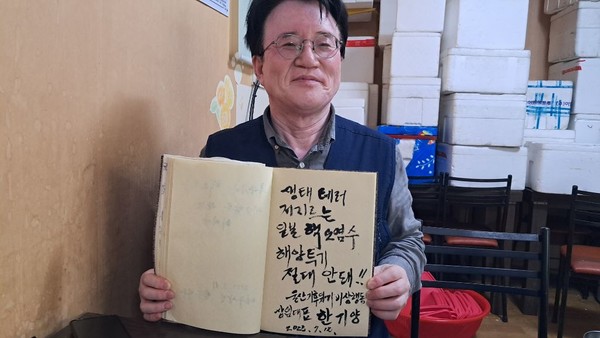 생태 테러
저지르는
일본 핵 오염수
해양투기
절대 안돼!!
-울산기후위기비상행동
상임대표 한기양
2023. 7. 12.